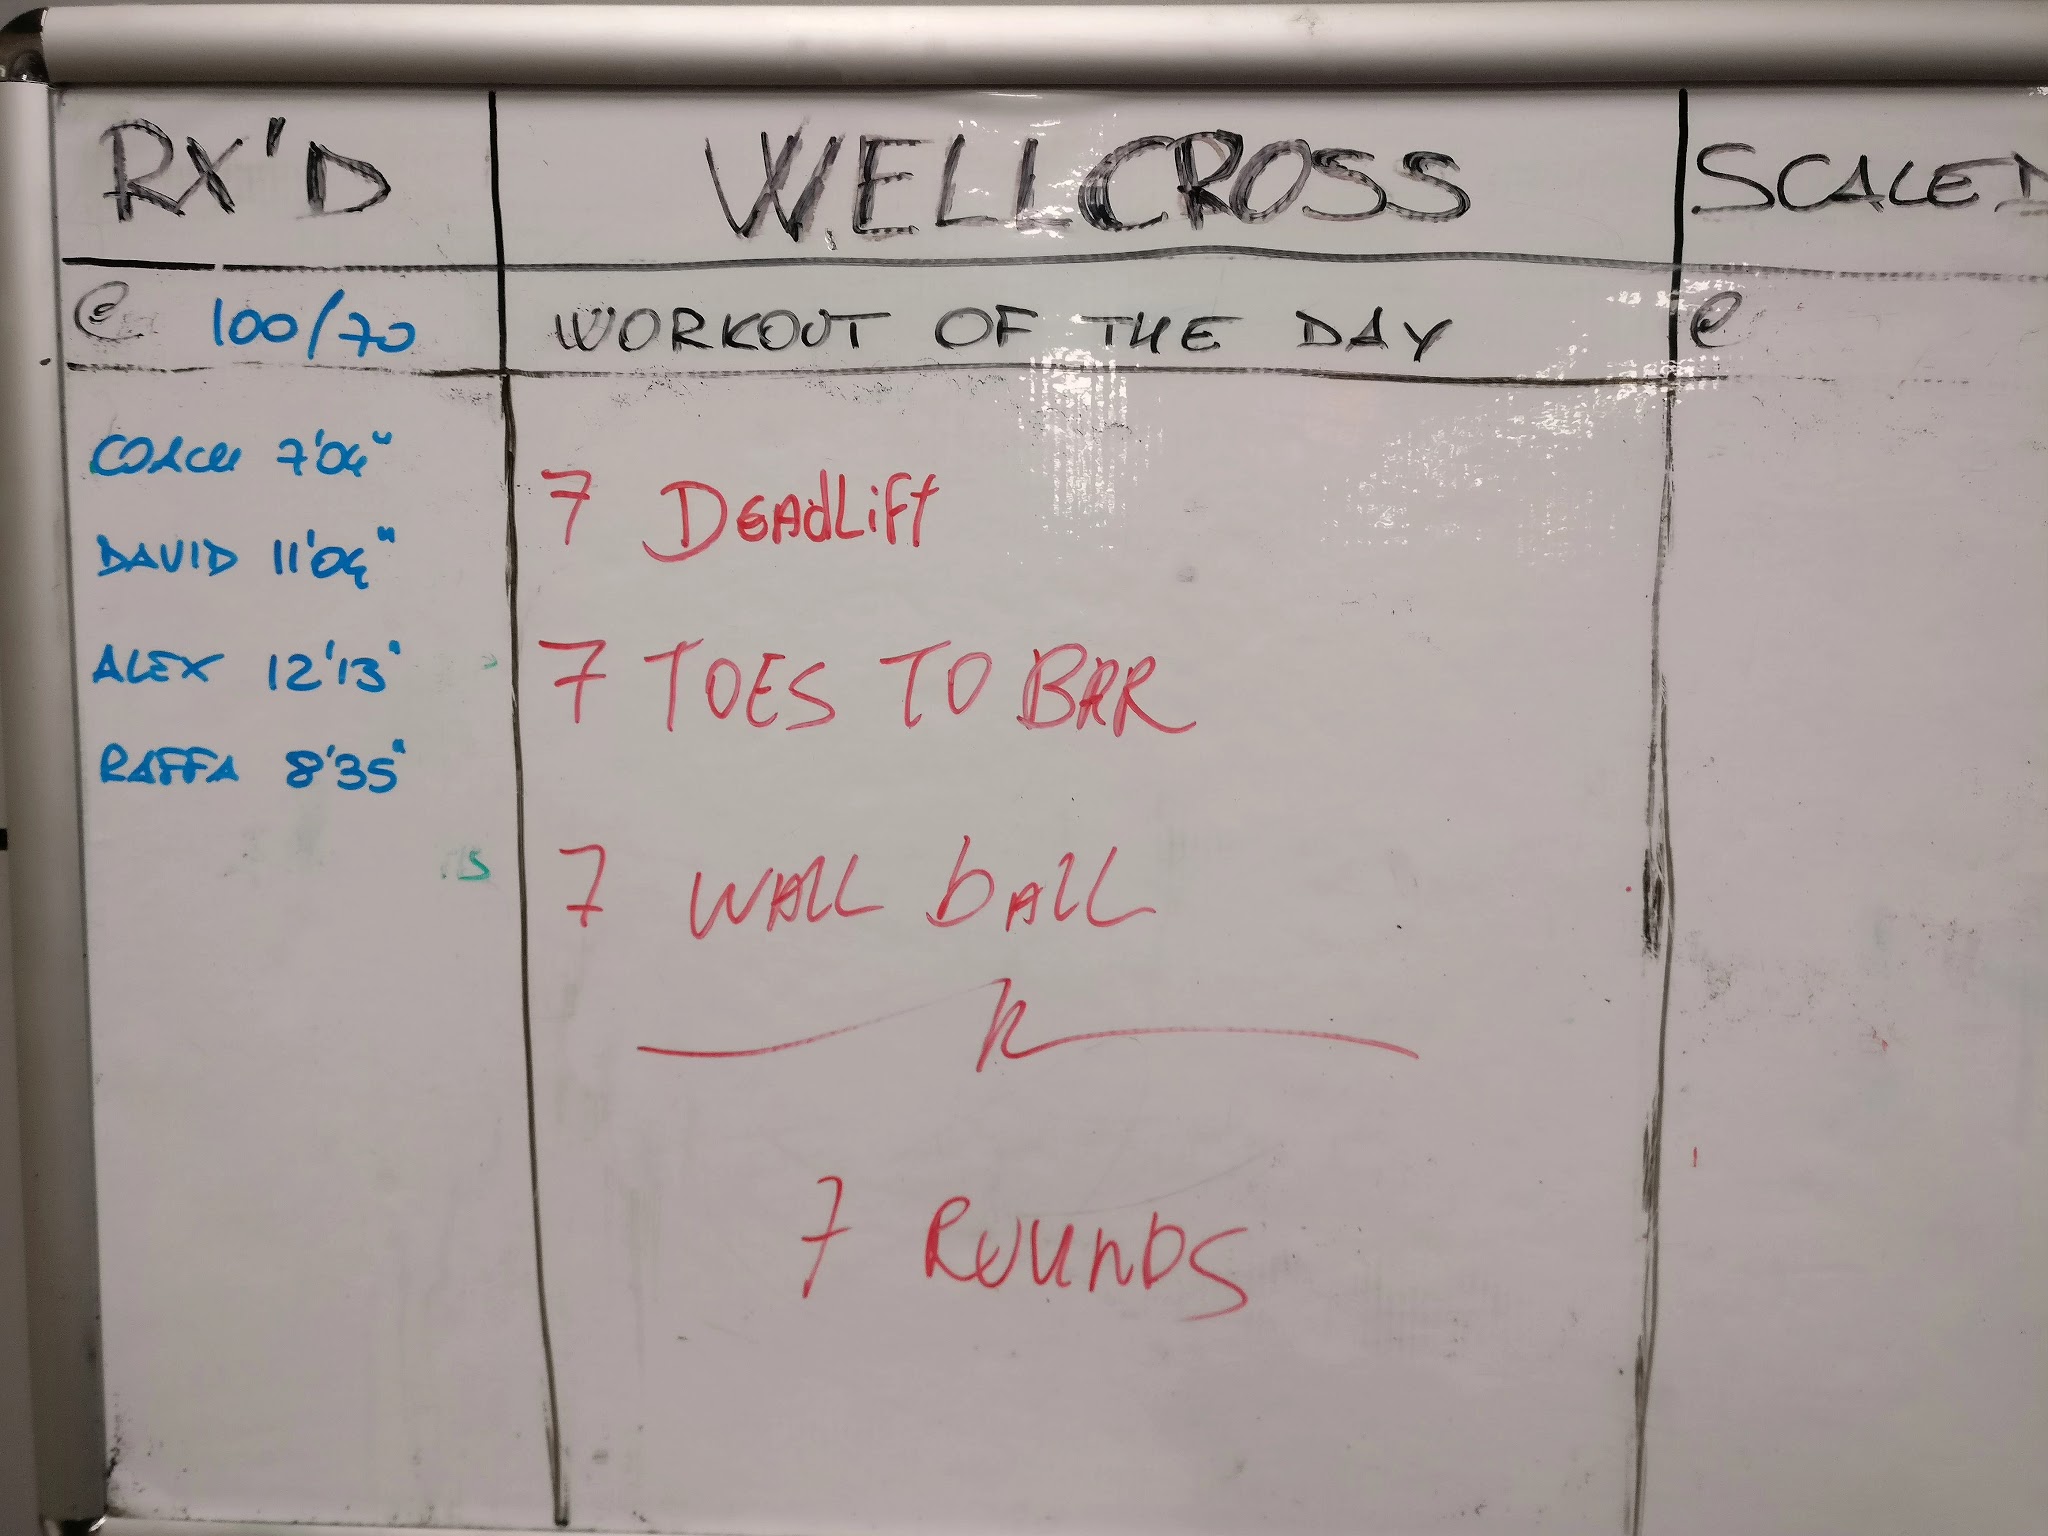 RX'D
@ 100/70
COACH 7'04"
DAVID 11'04"
ALEX 12'13"
RAFFA 8'35"
WELLCROSS
WORKOUT OF THE DAY
7 DEADLifT
7 TOES TO BAR
7 WALL bALL
7 ROUNDS
SCALED
@